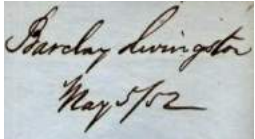 Barclay Livingston
May 5/52